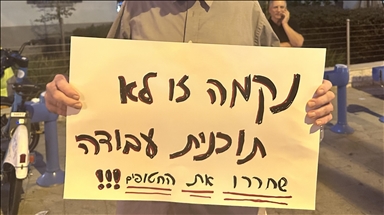 נקמה זו לא
תוכנית עבודה
שחררו את החטופים!!!